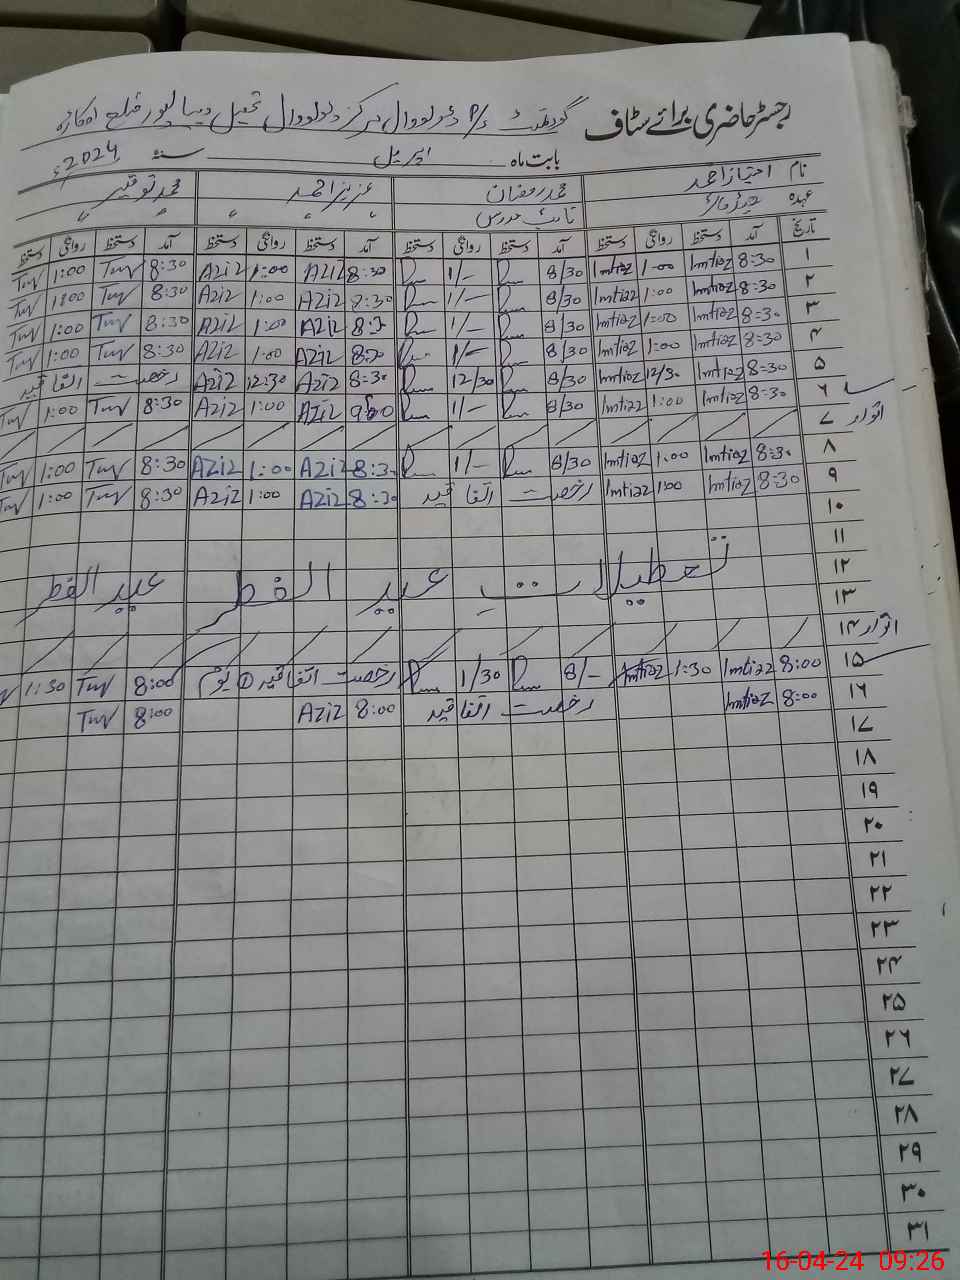 رجسٹر حاضری برائے سٹاف گورنمنٹ P/S دلووال مرکز دلووال تحصیل دیپالپور ضلع اوکاڑہ
بابت ماہ اپریل سنہ 2024ء
نام امتیاز احمد محمد رمضان عزیز احمد محمد توقیر
عہدہ ہیڈ ماسٹر نائب مدرس 〃 〃 〃 〃
تاریخ آمد دستخط روانگی دستخط آمد دستخط روانگی دستخط آمد دستخط روانگی دستخط آمد دستخط روانگی دستخط
۱ 8:30 Imtiaz 1:00 Imtiaz 8/30 1/- 8:30 Aziz 1:00 Aziz 8:30 1:00
۲ 8:30 Imtiaz 1:00 Imtiaz 8/30 1/- 8:30 Aziz 1:00 Aziz 8:30 1:00
۳ 8:30 Imtiaz 1:00 Imtiaz 8/30 1/- 8:30 Aziz 1:00 Aziz 8:30 1:00
۴ 8:30 Imtiaz 1:00 Imtiaz 8/30 1/- 8:30 Aziz 1:00 Aziz 8:30 1:00
۵ 8:30 Imtiaz 12/30 Imtiaz 8/30 12/30 8:30 Aziz 12:30 Aziz رخصت اتفاقیہ
۶ 8:30 Imtiaz 1:00 Imtiaz 8/30 1/- Aziz 1:00 Aziz 8:30 1:00
۷ اتوار
۸ 8:30 Imtiaz 1:00 Imtiaz 8/30 1/- 8:30 Aziz 1:00 Aziz 8:30 1:00
۹ 8:30 Imtiaz 1:00 Imtiaz رخصت اتفاقیہ 8:30 Aziz 1:00 Aziz 8:30 1:00
۱۰
۱۱
۱۲ تعطیلات عید الفطر عید الفطر
۱۳
۱۴ اتوار
۱۵ 8:00 Imtiaz 1:30 Imtiaz 8/- 1/30 رخصت اتفاقیہ ① یوم 8:00 1:30
۱۶ 8:00 Imtiaz رخصت اتفاقیہ 8:00 Aziz 8:00
۱۷
۱۸
۱۹
۲۰
۲۱
۲۲
۲۳
۲۴
۲۵
۲۶
۲۷
۲۸
۲۹
۳۰
۳۱
16-04-24 09:26